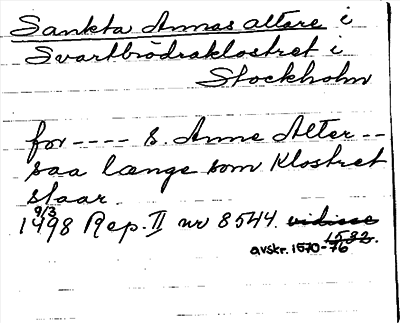 Sankta Annas altare i
Svartbrödraklostret i
Stockholm
for ---- S. Anne Alter --
saa længe som Klostret
staar.
9/3
1498 Rep. II nr 8544. vidisse
1582.
avskr. 1570-76